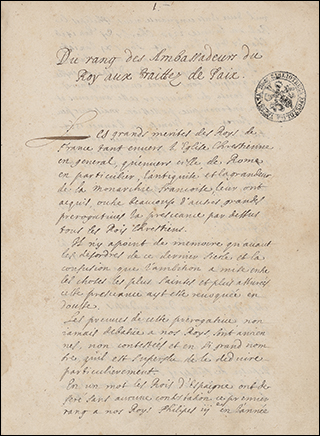 1
Du rang des Ambassadeurs du
Roy aux traittez de Paix.
Les grands merites des Roys de
France tant envers l'Eglise Chrestienne
en general, qu'envers celle de Rome
en particulier, l'antiquité et la grandeur
de la Monarchie Francoise, leur ont
acquis, outre beaucoup d'autres grandes
prerogatives la presceance par dessus
tous les Rois Chrestiens.
Il n'y a point de memoire qu'avant
les desordres de ce dernier siecle et la
confusion que l'ambition a mise entre
les choses les plus saintes et plus
cette presceance ayt esté revoquee en
doute.
Les preuves de cette prerogative non
jamais debatue a nos Roys, sont ancien
nes, non contestées et en si grand nom
bre, qu'il est superflu de le deduire
particulierement.
En un mot les Rois d'Espaigne ont de
feré sans aucune contestation ce premier
rang a nos Roys Philipes iij en l'année